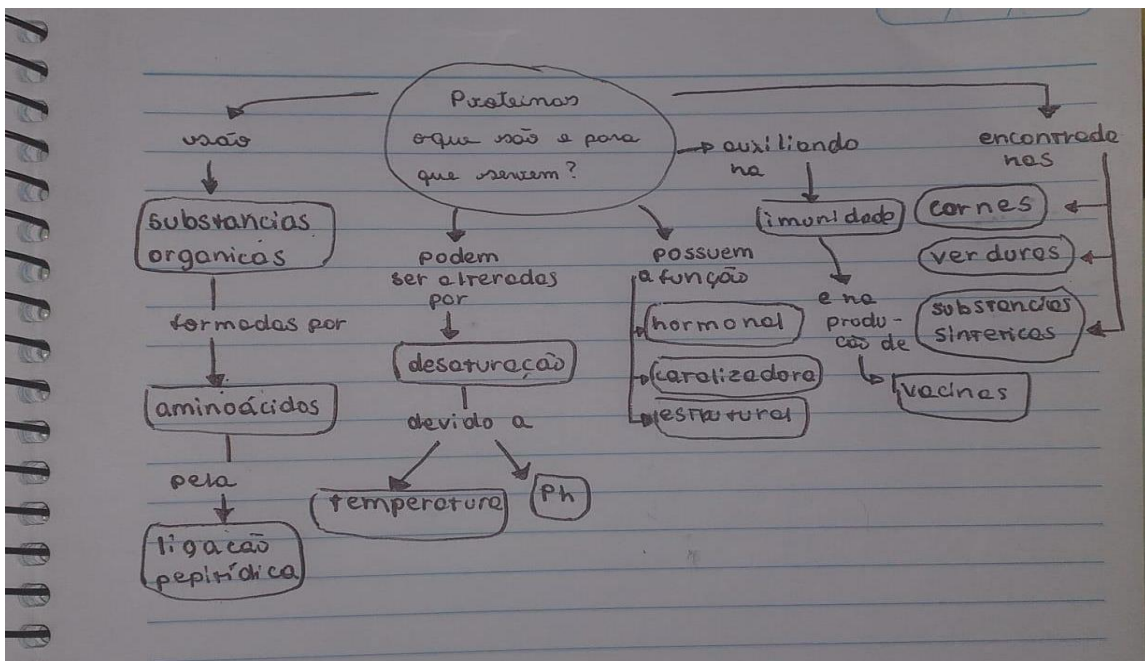 Proteinas
oque são e para
que servem?
são
substancias
organicas
formadas por
aminoácidos
pela
ligação
pepitídica
podem
ser alteradas
por
desaturação
devido a
temperatura
Ph
possuem
a função
hormonal
catalizadora
estrutural
auxiliando
na
imunidade
e na
produ-
ção de
vacinas
encontrada
nas
carnes
verduras
substancias
sinteticas